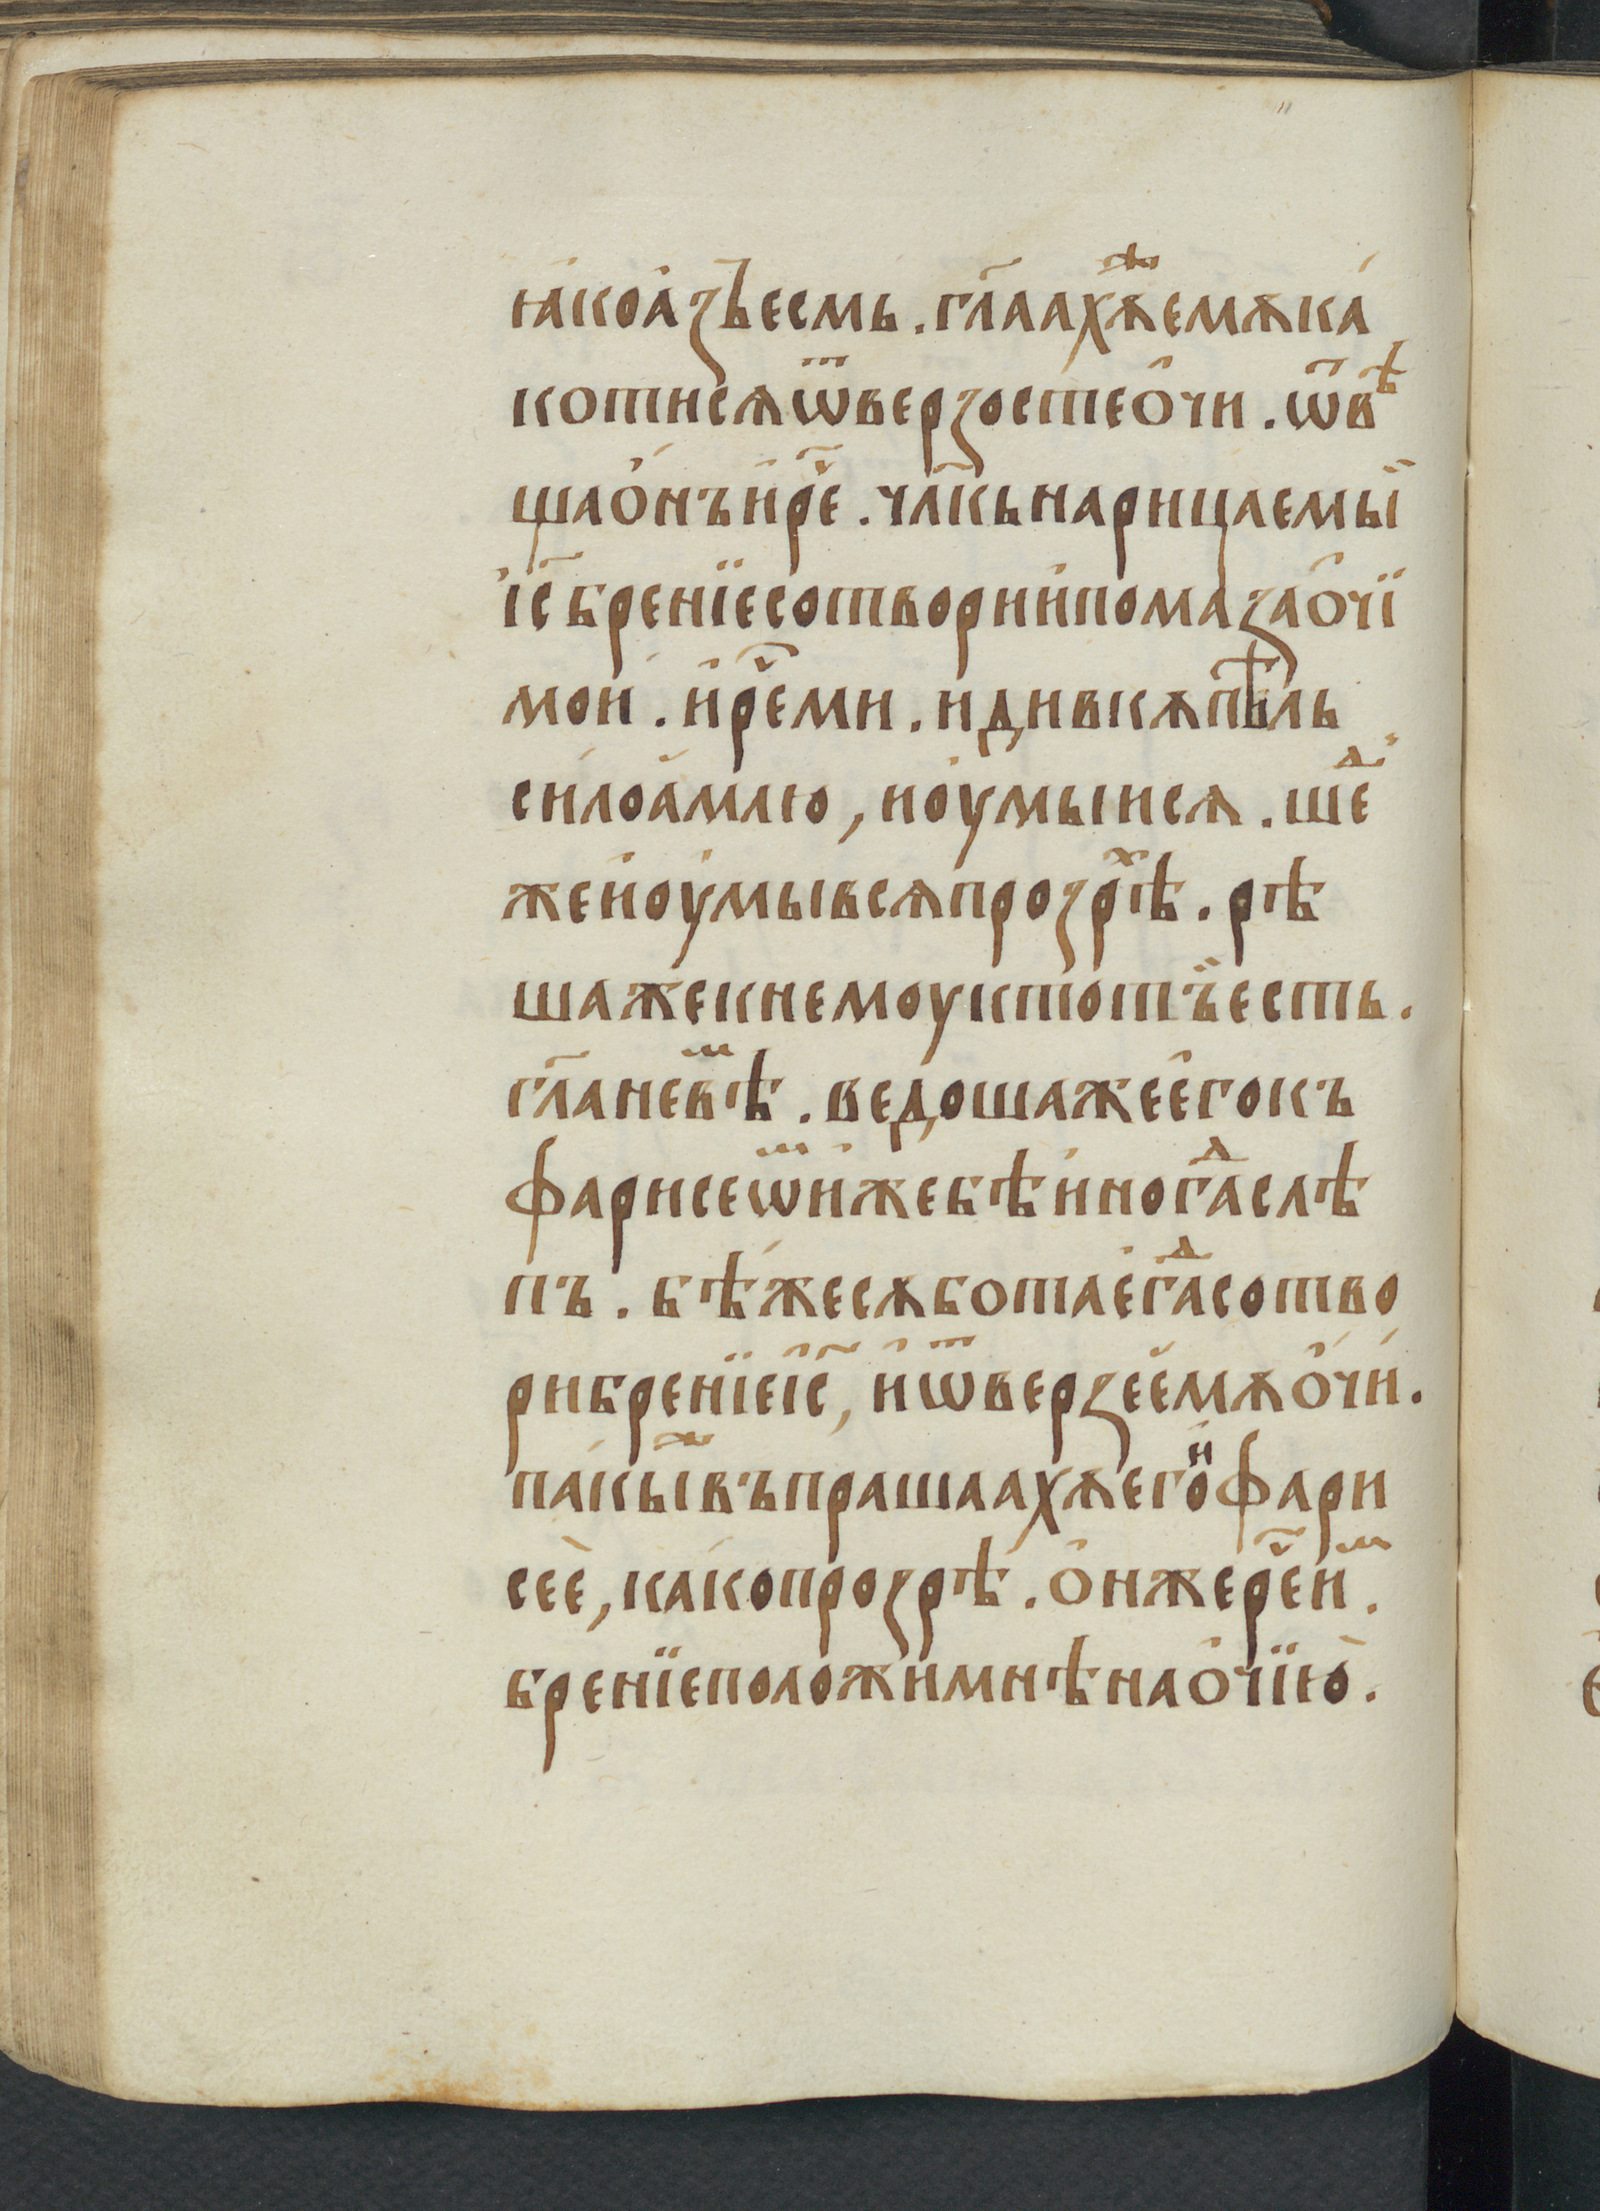 ꙗ҆коа҆зъесмь . гл҃аахѫⷤемѫка́
котисѧѿверзостео҆чи . ѿвⷷѣ
щао҆нъи҆рⷱ҇е . чл҃кьнарицаемыи
і҆с҃ брⸯенїесотвории҆помазао҆чї
мои҆ . и҆рⷱ҇еми . идивкѫпѣ́ль
силоа́млю , иоумыисѧ . шеⷣ
жеи҆оумывсѧпрозрⷯѣ . рѣ
шажекнемоуктотъе́сть .
гл҃аневⷨѣ . ведошажее҆гокъ
фарисеѿⷨи́жебѣи́ногⷣаслѣ
пъ . бѣ́жесѫботаегⷣасотво
рибренїеі҆с҃ , и҆ѿверзее҆мѫо҆чи́ .
па́кыⷤвъпрашаахѫегоⷩ҇фари
сеѐ , ка́копрозрѣ̀ . о҆нжерⷱ҇еиⷨ .
бренїеположимнѣнао҆чїю̀ .